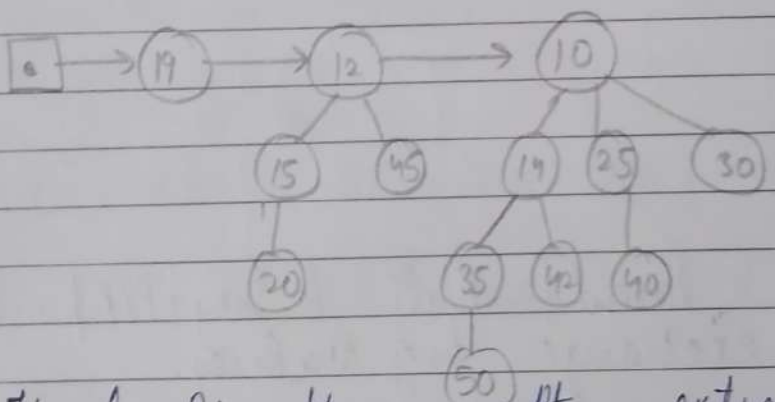 19 12 10
15 45 14 25 30
20 35 42 40
50